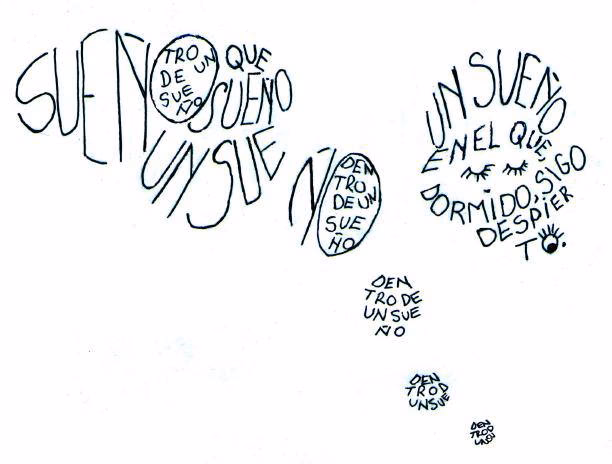 SUEÑO QUE
TRO
DE UN
SUE
ÑO
SUEÑO
UN SUE
ÑO
DEN
TRO
DE UN
SUE
ÑO
UN SUEÑO
EN EL QUE,
DORMIDO, SIGO
DESPIER
TO.
DEN
TRO DE
UN SUE
ÑO
DEN
TRO D
UN SUE
DEN
TROD